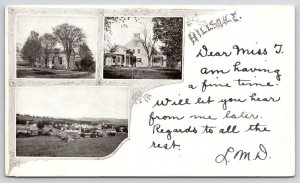 HILLSB'T.
Dear Miss T.
am having
a fine time.
Will let you hear
from me later.
Regards to all the
rest.
L. M. D.